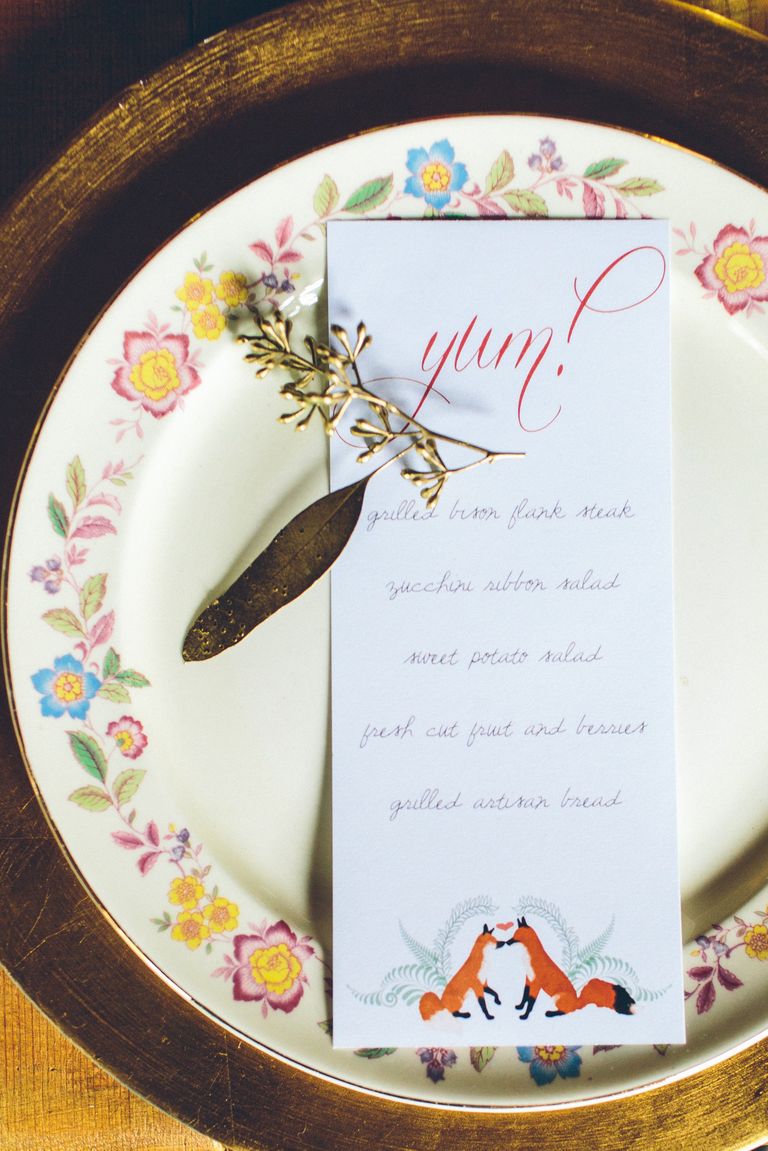 yum!
grilled bison flank steak
zucchini ribbon salad
sweet potato salad
fresh cut fruit and berries
grilled artisan bread